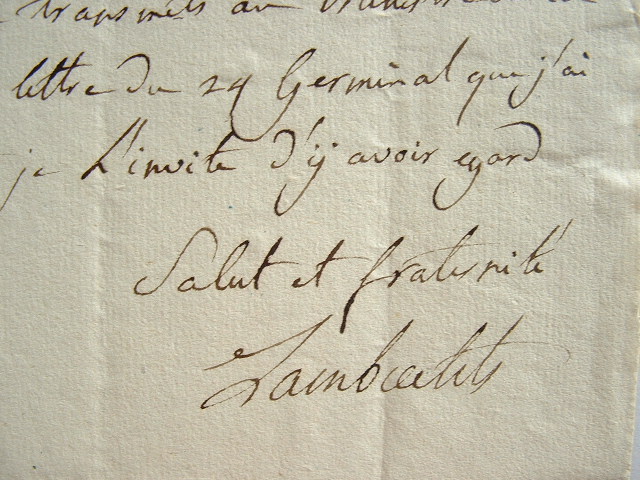 transmets au
lettre du 24 Germinal que j'ai
je L'invite d'y avoir egard
Salut et fraternité
Lambrechts